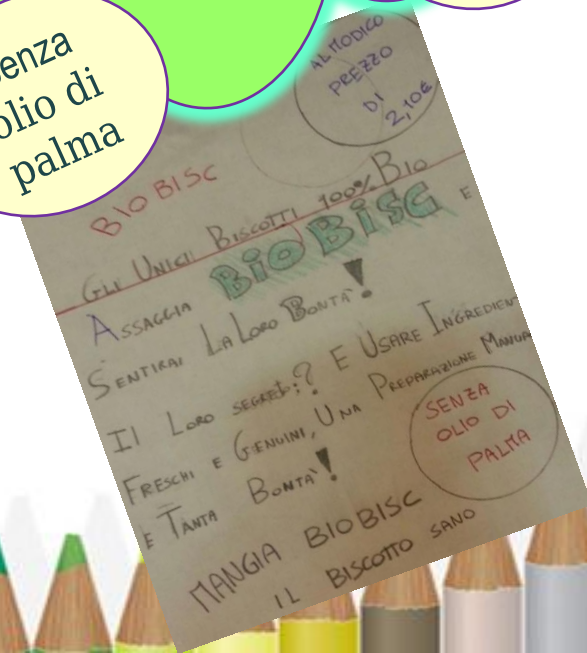 senza
olio di
palma
AL MODICO
PREZZO
DI
2,10€
BIO BISC
GLI UNICI BISCOTTI 100% BIO
ASSAGGIA BIO BISC E
SENTIRAI LA LORO BONTA'!
IL LORO SEGRETO? E USARE INGREDIEN
FRESCHI E GENUINI, UNA PREPARAZIONE MANUA
E TANTA BONTA'!
SENZA
OLIO DI
PALMA
MANGIA BIOBISC
IL BISCOTTO SANO